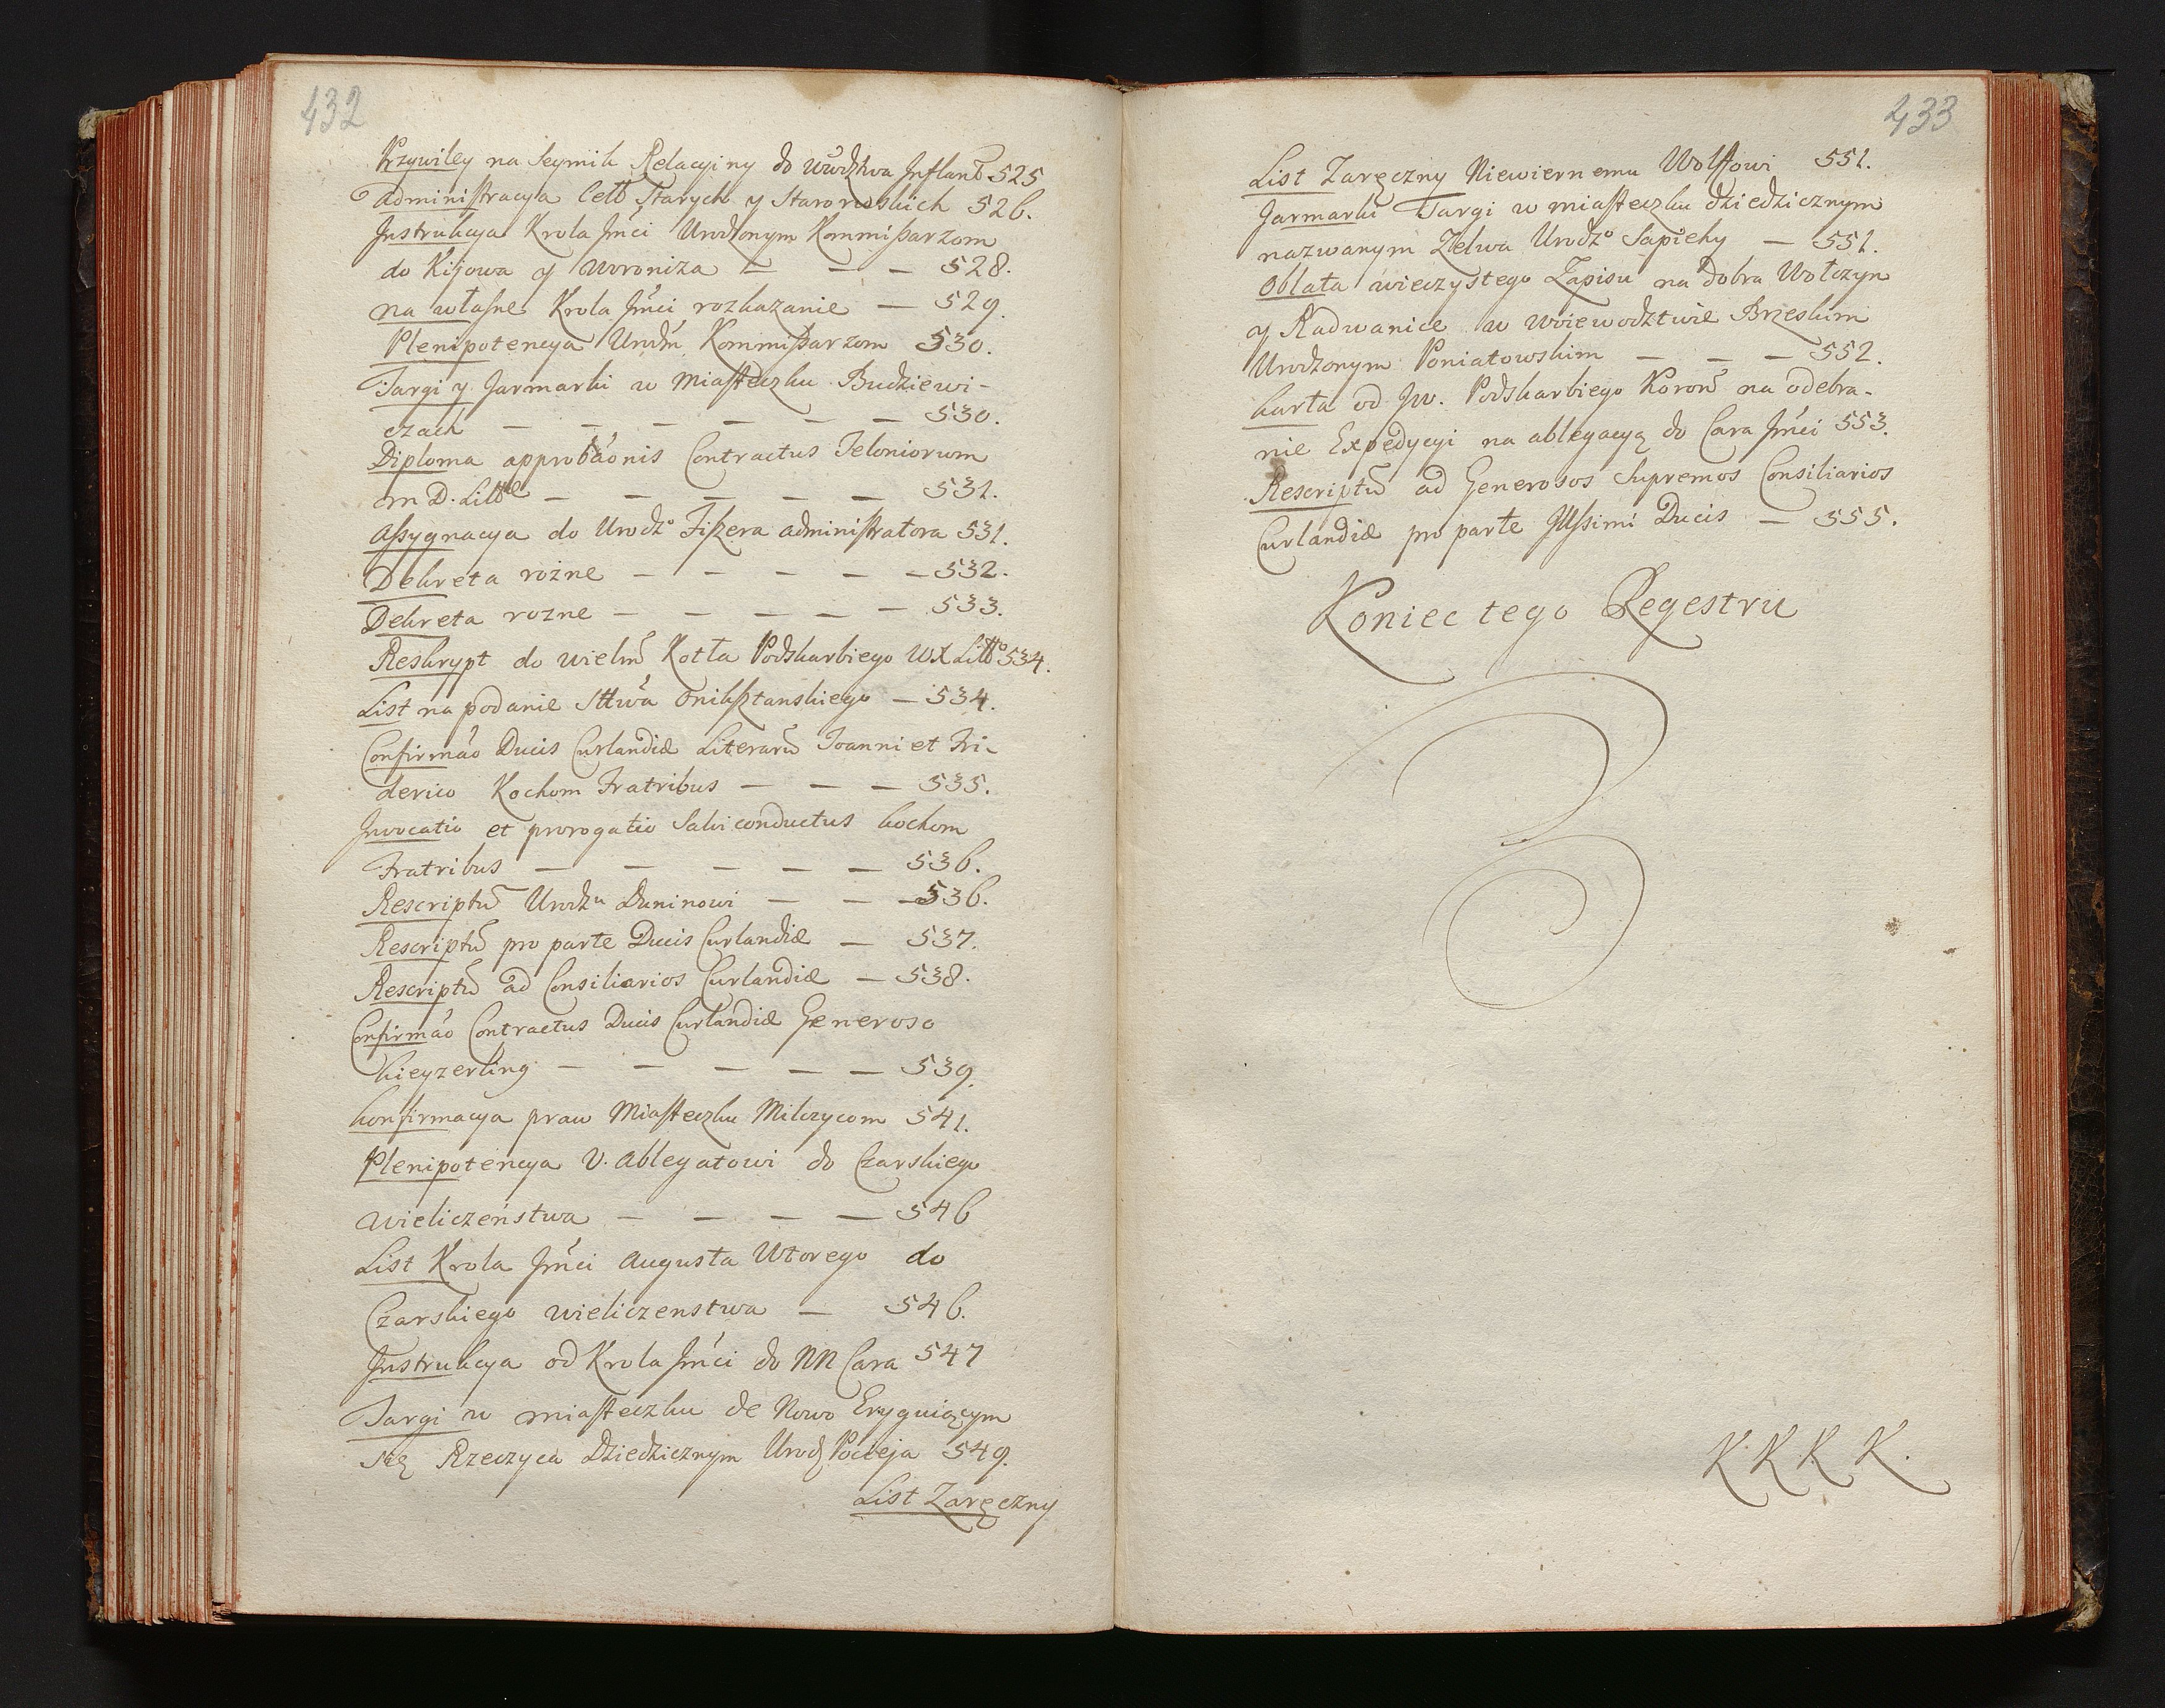 432
Przywiley na Seymik Relacyiny do Wwdztwa Inflant 525
Administracya Cell Starych y Starorwskich 526.
Instrukcya Krola Jmći Urodzonym Kommißarzom
do Kijowa y Woroniza — — — 528.
na własne Krola Jmći rozkazanie — 529.
Plenipotencya Urodm̃ Kommißarzom 530.
Targi y Jarmarki w Miasteczku Budziewi-
czach — — — — — 530.
Diploma approbãonis Contractus Teloniorum
m D. Littt — — — — — 531.
Assygnacya do Urodzo Fiszera administratora 531.
Dekreta rożne — — — — — 532.
Dekreta rozne — — — — — 533.
Reskrypt do wielm̃ Kotła Podskarbiego WX Litto 534.
List na podanie Sttwa Oniksztanskiego — 534.
Confirmão Ducis Curlandiæ Literarũ Joanni et Fri-
derico Kochom Fratribus — — — 535.
Invocatio et prorogatio Salvi conductus kochom
Fratribus — — — — — 536.
Rescriptũ Urodzu Duninowi — — — 536.
Rescriptũ pro parte Ducis Curlandiæ — 537.
Rescriptũ ad Consiliarios Curlandiæ — 538.
Confirmão Contractus Ducis Curlandiæ Generoso
kieyzerling — — — — — 539.
konfirmacya praw Miasteczku Milczycom 541.
Plenipotencya U. Ablegatowi do Czarskiego
wieliczeństwa — — — — 546
List Krola Jmći Augusta Wtorego do
Czarskiego wieliczenstwa — 546.
Instrukcya od Krola Jmći do NN Cara 547
Targi w miasteczku de Nowo Eryguiącym
się Rzeczyca Dziedzicznym Urodz Pocieja 549.
List Zaręczny
433
List Zaręczny Niewiernemu Wolffowi 551.
Jarmarki Targi w miasteczku dziedzicznym
nazwanym Zelwa Urodzo Sapiehy — 551.
Oblata wieczystego Zapisu na dobra Wołczyn
y Radwanice w woiewodztwie Brzeskim
Urodzonym Poniatowskim — — — 552.
karta od Jw. Podskarbiego Koron̄ na odebra-
nie Expedycyi na ablegacyą do Cara Jmći 553.
Rescriptũ ad Generosos Supremos Consiliarios
Curlandiæ pro parte Illssimi Ducis — 555.
Koniec tego Regestru
K K K K.